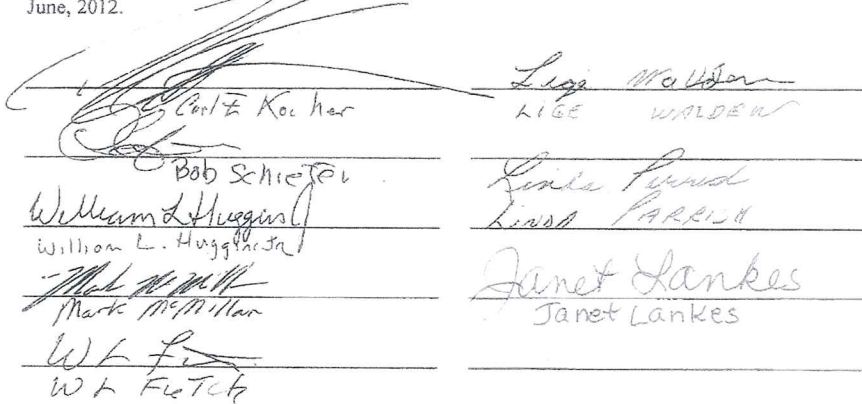 June, 2012.
Carl E Kocher
Bob Schiefer
William L Huggins J
William L. Huggins Jr
Mark McMillan
W L
W L
Lige Walden
LIGE WALDEN
Linda Parrish
LINDA PARRISH
Janet Lankes
Janet Lankes